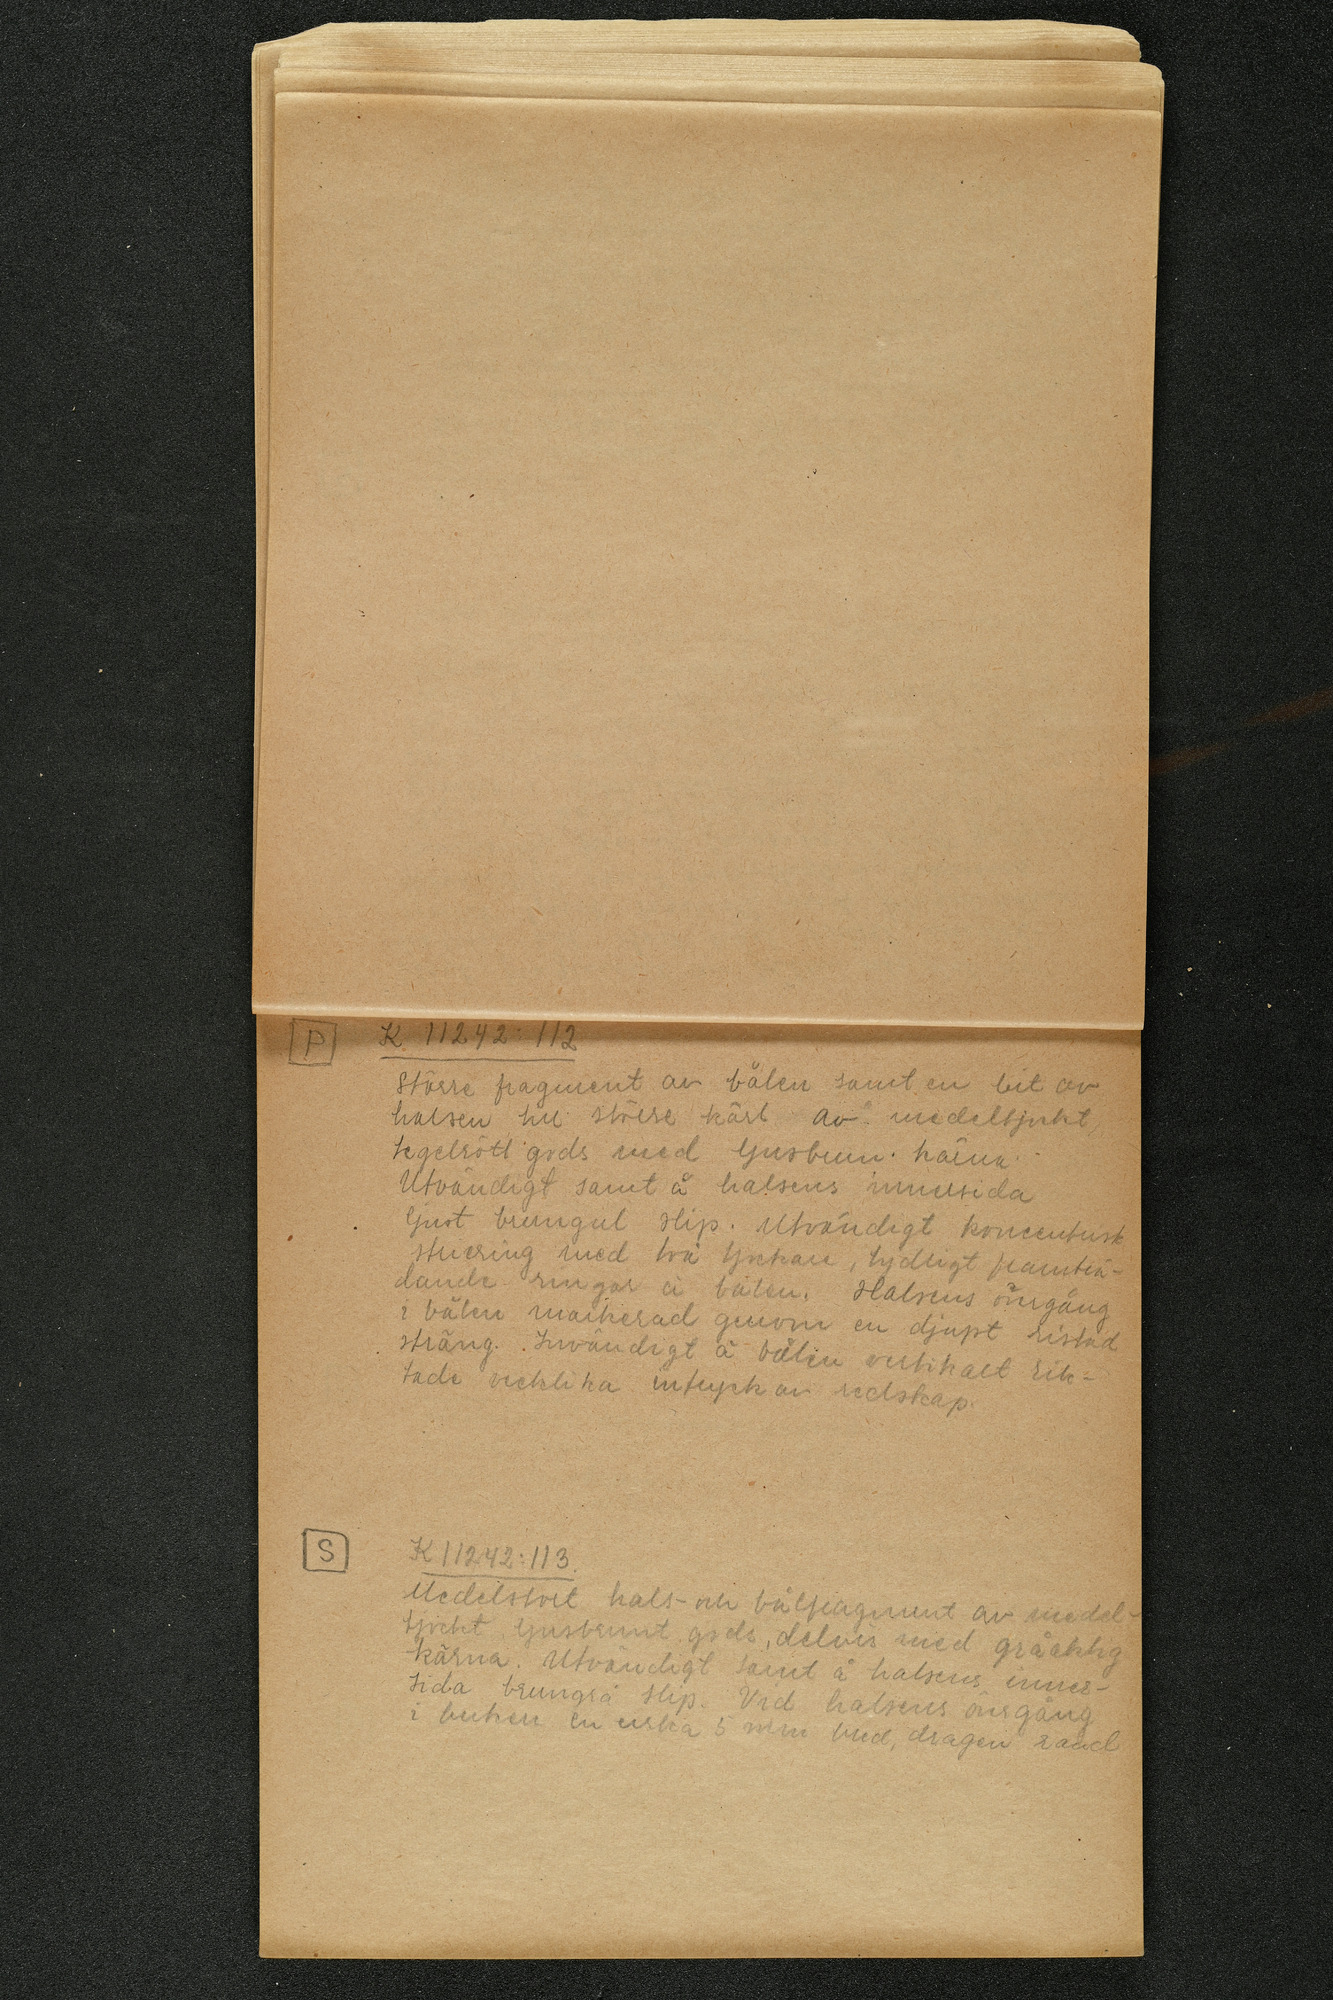 P K 11242:112
Större fragment av bålen samt en bit av
halsen till större kärl av medeltjockt,
tegelrött gods med ljusbrun kärna.
Utvändigt samt å halsens innersida
ljust brungul slip. Utvändigt koncentrisk
striering med två tjockare, tydligt framträ-
dande ringar å bålen. Halsens övergång
i bålen markerad genom en djupt ristad
sträng. Invändigt å bålen vertikalt rik-
tade vecklika intryck av redskap.
S K 11242:113
Medelstort hals- och bålfragment av medel-
tjockt ljusbrunt gods, delvis med gråaktig
kärna. Utvändigt samt å halsens inner-
sida brungrå slip. Vid halsens övergång
i buken en cirka 5 mm bred, dragen rand